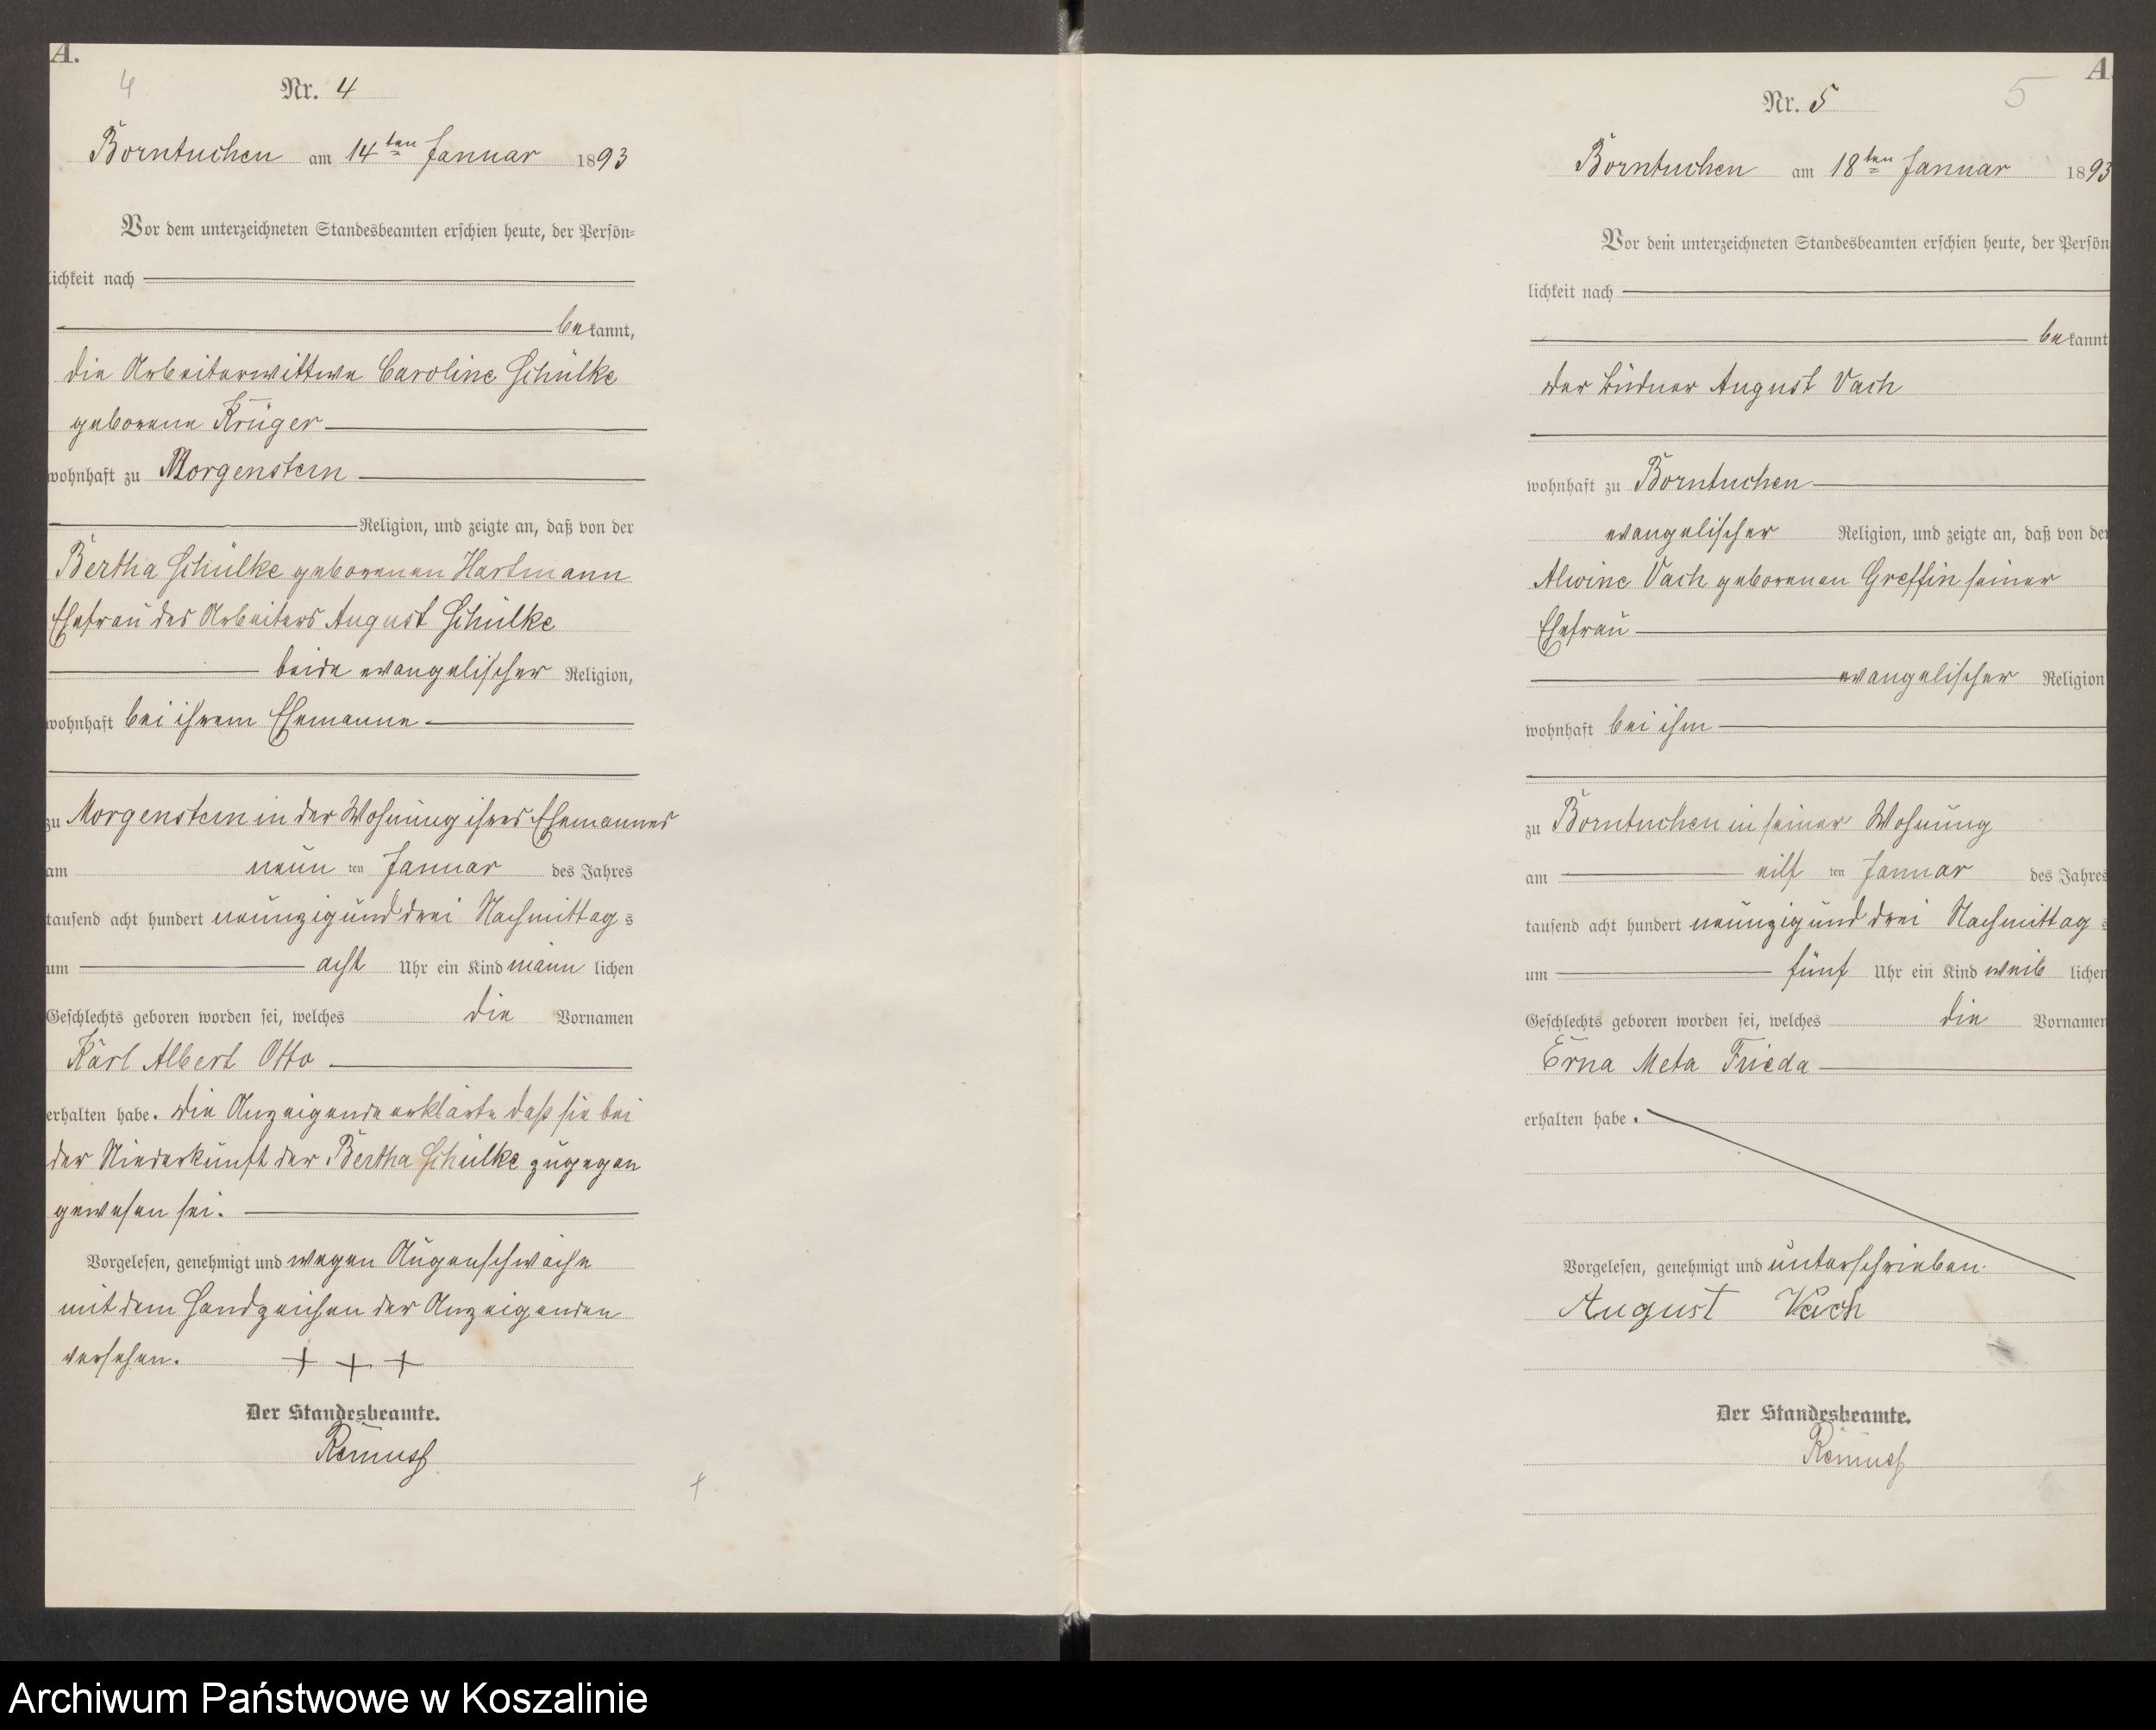 A.
4
Nr. 4
Borntuchen am 14ten Januar 1893
Vor dem unterzeichneten Standesbeamten erschien heute, der Persön-
lichkeit nach
bekannt,
die Arbeiterwittwe Caroline Schülke
geborene Krüger
wohnhaft zu Morgenstern
Religion, und zeigte an, daß von der
Bertha Schülke geborenen Hartmann
Ehefrau des Arbeiters August Schülke
beide evangelischer Religion,
wohnhaft bei ihrem Ehemanne
zu Morgenstern in der Wohnung ihres Ehemannes
am neun ten Januar des Jahres
tausend acht hundert neunzig und drei Nachmittags
um acht Uhr ein Kind männlichen
Geschlechts geboren worden sei, welches die Vornamen
Karl Albert Otto
erhalten habe. Die Anzeigende erklärte daß sie bei
der Niederkunft der Bertha Schülke zugegen
gewesen sei.
Vorgelesen, genehmigt und wegen Augenschwäche
mit dem Handzeichen der Anzeigenden
versehen. + + +
Der Standesbeamte.
Remus
A
5
Nr. 5
Borntuchen am 18ten Januar 1893
Vor dem unterzeichneten Standesbeamten erschien heute, der Persön
lichkeit nach
bekannt
der Büdner August Vach
wohnhaft zu Borntuchen
evangelischer Religion, und zeigte an, daß von der
Alwine Vach geborenen Greffin seiner
Ehefrau
evangelischer Religion
wohnhaft bei ihm
zu Borntuchen in seiner Wohnung
am eilf ten Januar des Jahres
tausend acht hundert neunzig und drei Nachmittags
um fünf Uhr ein Kind weiblichen
Geschlechts geboren worden sei, welches die Vornamen
Erna Meta Frieda
erhalten habe.
Vorgelesen, genehmigt und unterschrieben.
August Vach
Der Standesbeamte.
Remus
Archiwum Państwowe w Koszalinie